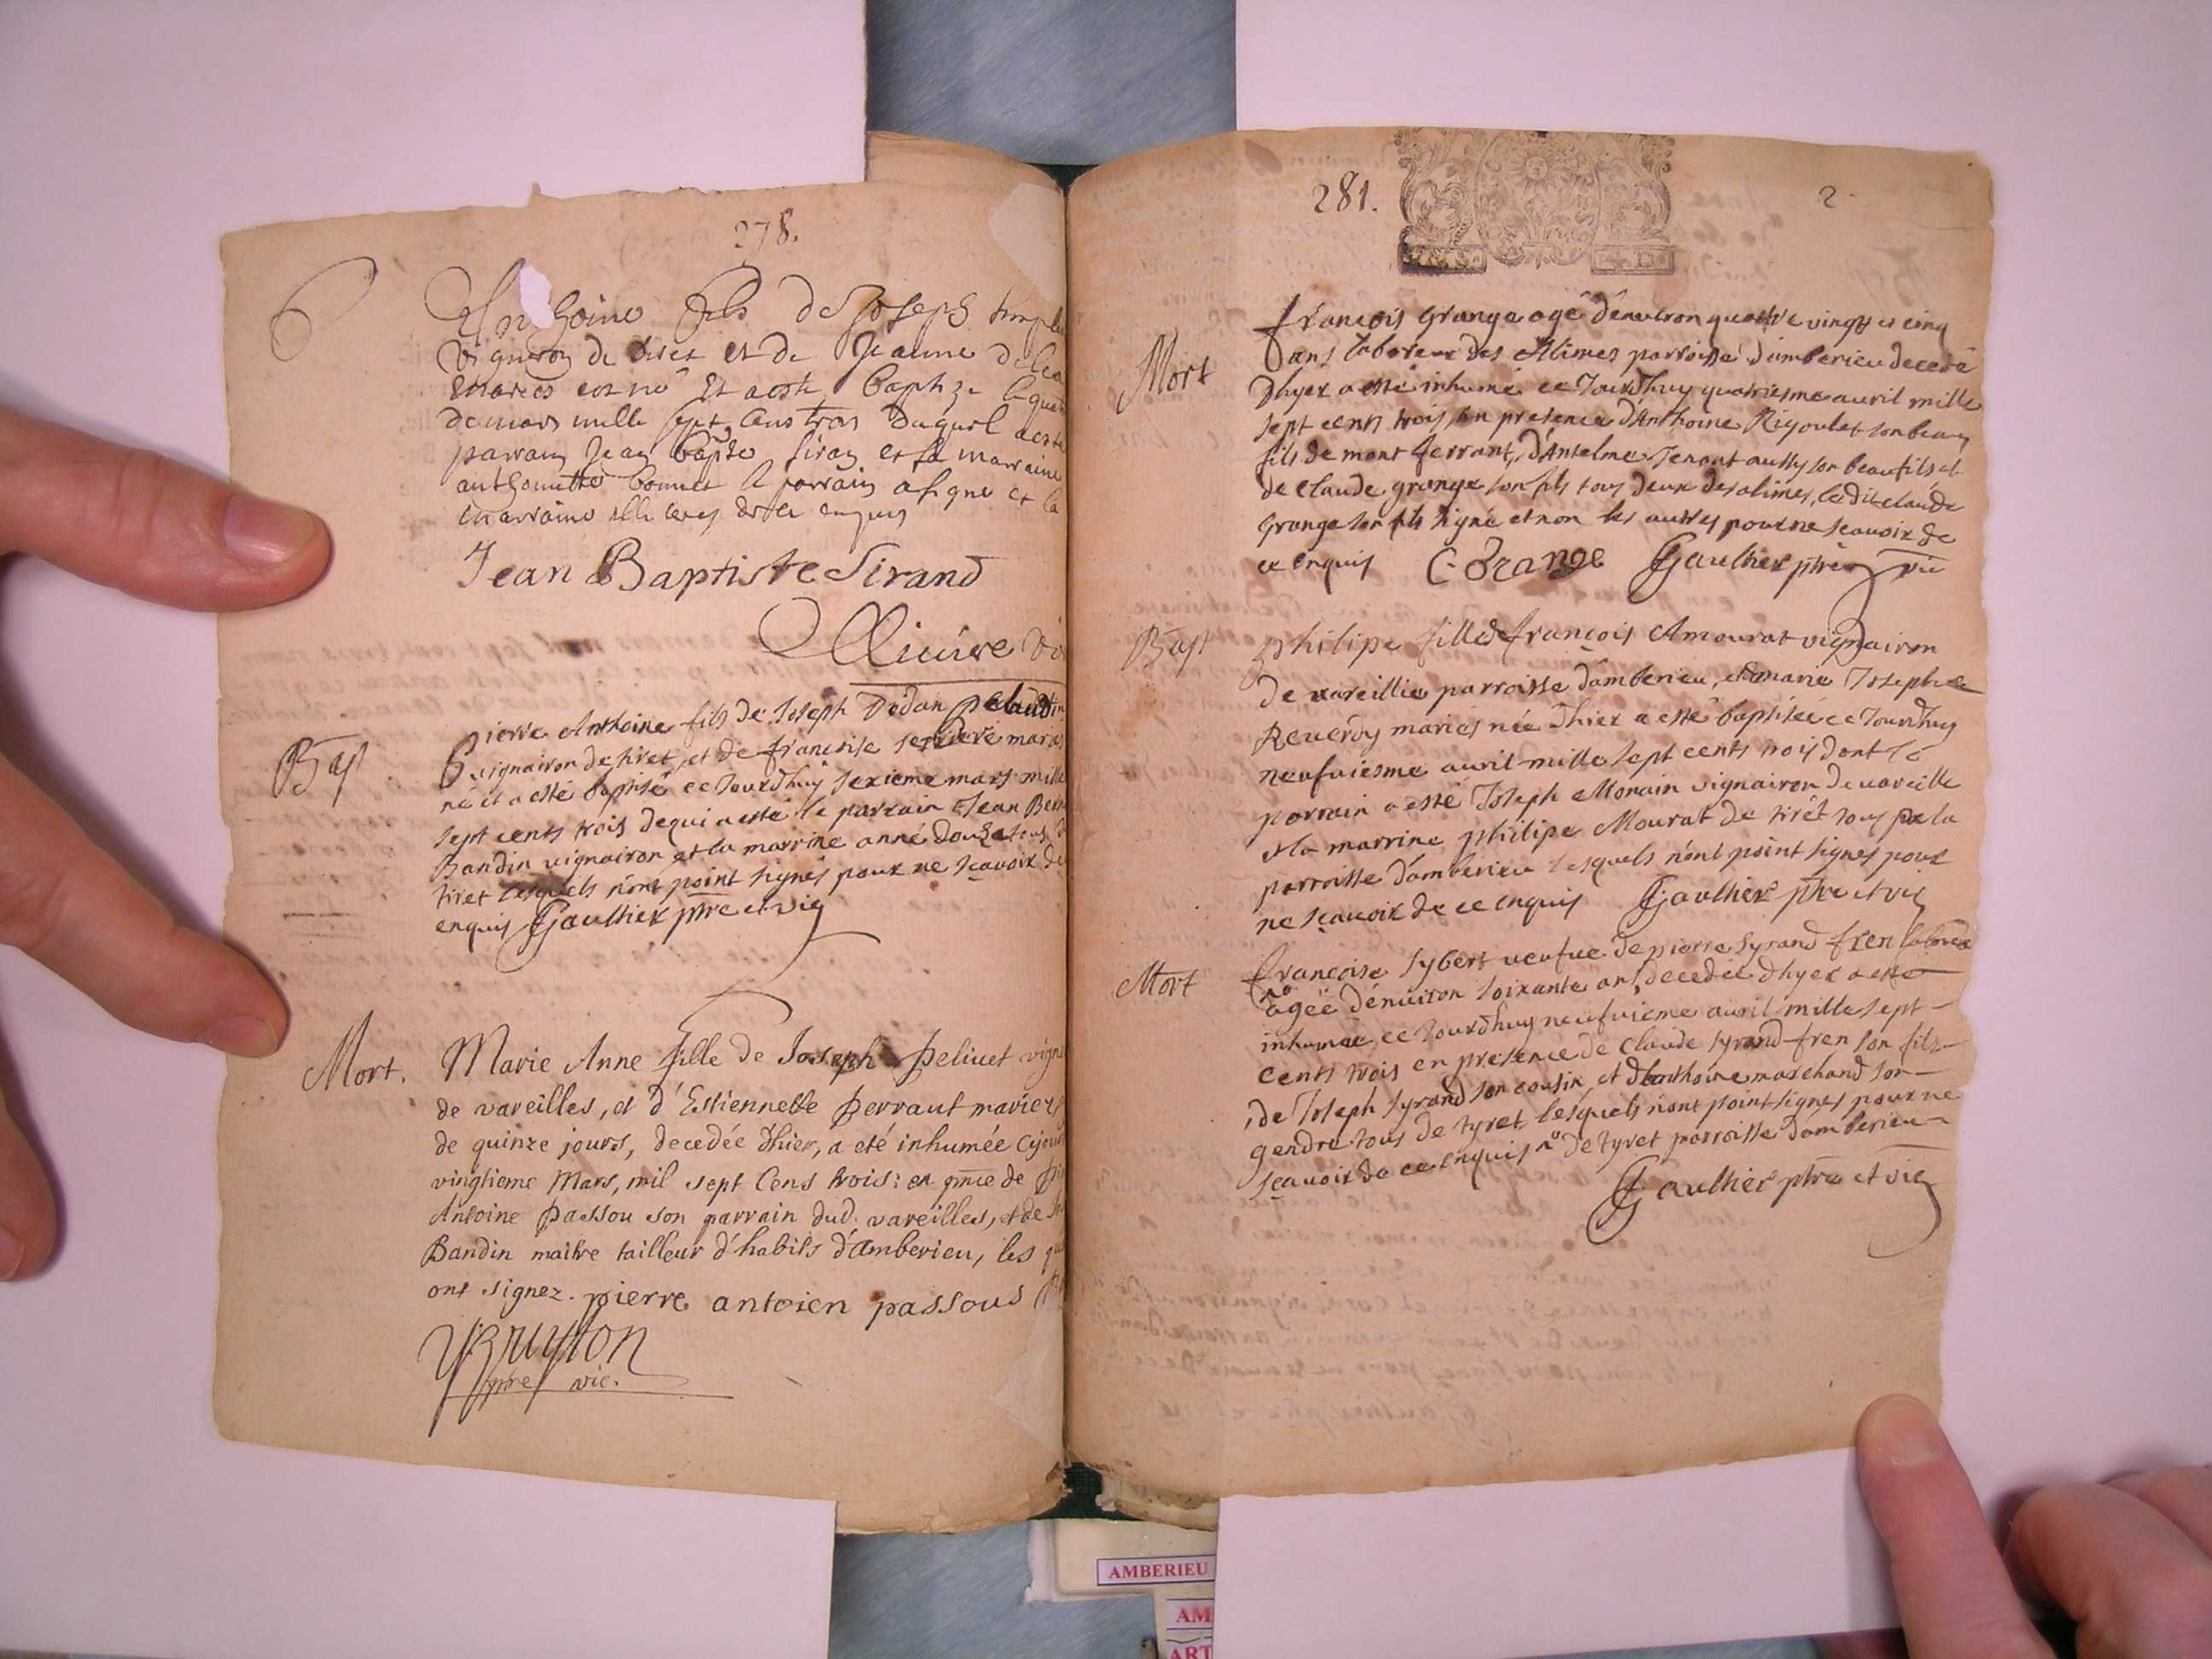 278.
fils de Joseph
vigneron de tiret et de Jeanne
mariés est né Et a esté baptizé le
de mars mille sept cens trois duquel a esté
parrain Jean bapte sirand et la marraine
anthoinette bonnet le parrain a signé et la
marraine
Jean Baptiste Sirand
Bap
pierre Anthoine fils de Joseph Dodan
vignairon de tiret, et de françoise mariés
né et a esté baptisé ce Jourdhuy sexieme mars mille
sept cents trois dequi a esté le parrain Jean
Bandin vignairon et la marrine anne
tiret lesquels n'ont point signés pour ne sçavoir de
enquis Gaulthier ptre et vic
Mort.
Marie Anne fille de Joseph Pelivet
de vareilles, et d'Estiennette Perraut mariez
de quinze jours, decedée d'hier, a eté inhumée
vingtieme Mars, mil sept Cens trois: en pnce de
Antoine Passou son parrain dud. vareilles, et de
Bandin maitre tailleur d'habits d'Amberieu, les
ont signez. pierre antoien passous
Bruyson
ptre vic.
281.
2
Mort
françois Grange agé d'environ quatre vingts et cinq
ans laboreur des Alimes parroisse d'amberieu decedé
d'hyer a esté inhumé ce Jourdhuy quatriesme auril mille
sept cents trois, en presence d'Anthoine Rigoulet son beau
fils de mont ferrant, d'Antelme Tenant aussy son beaufils et
de Claude grange son fils tous deux des alimes, ledit claude
Grange son fils signé et non les autres pour ne sçauoir de
ce enquis C. Grange Gaulthier ptre vic
Bapt
philipe fille de françois Amourat vignairon
de vareillie parroisse d'amberieu, et marie Josephe
Reuerdy mariés née d'hier a esté baptisée ce Jourdhuy
neufuiesme auril mille sept cents trois dont le
parrain a esté Joseph Monain vignairon de vareille
et la marrine philipe Mourat de tirét tous de la
parroisse d'amberieu lesquels n'ont point signés pour
ne sçauoir de ce enquis Gaulthier ptre et vic
Mort
françoise Sybert veufue de pierre Syrand fren
agée d'enuiron soixante ans, decedée d'hyer a esté
inhumée ce Jourdhuy neufuieme auril mille sept
cents trois en presence de Claude syrand fren son fils
de Joseph Syrand son cousin, et d'Anthoine marchand son
gendre tous de tyret lesquels n'ont point signés pour ne
sçauoir de ce enquis de tyret parroisse d'amberieu
Gaulthier ptre et vic
AMBERIEU
AM
ART